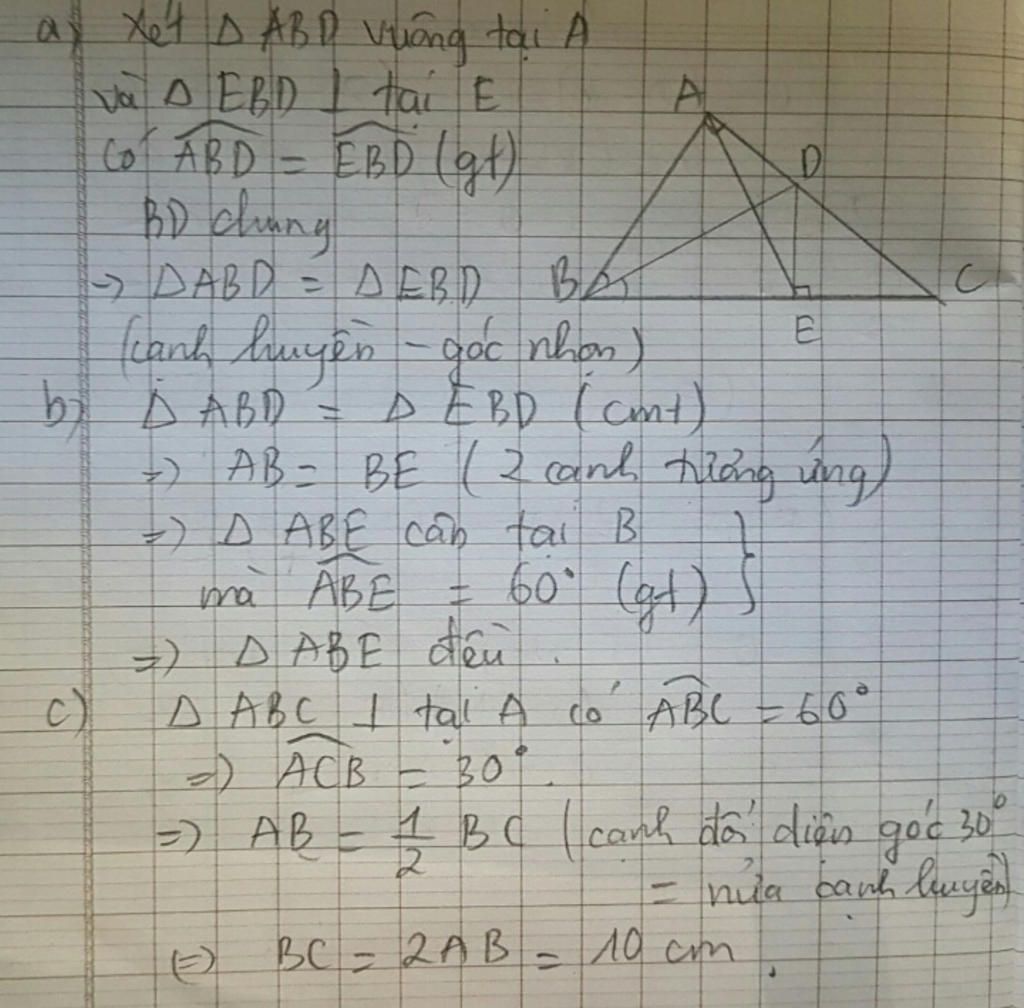 a) Xét Δ ABD vuông tại A
và Δ EBD ⊥ tại E
Có \widehat{ABD} = \widehat{EBD} (gt)
BD chung
=> ΔABD = ΔEBD
(cạnh huyền - góc nhọn)
A
D
B
C
E
b) Δ ABD = Δ EBD (cmt)
=> AB = BE (2 cạnh tương ứng)
=> Δ ABE cân tại B
mà \widehat{ABE} = 60° (gt) }
=> Δ ABE đều.
c) Δ ABC ⊥ tại A có \widehat{ABC} = 60°
=> \widehat{ACB} = 30°.
=> AB = 1/2 BC (cạnh đối diện góc 30°
= nửa cạnh huyền)
(=) BC = 2AB = 10 cm.